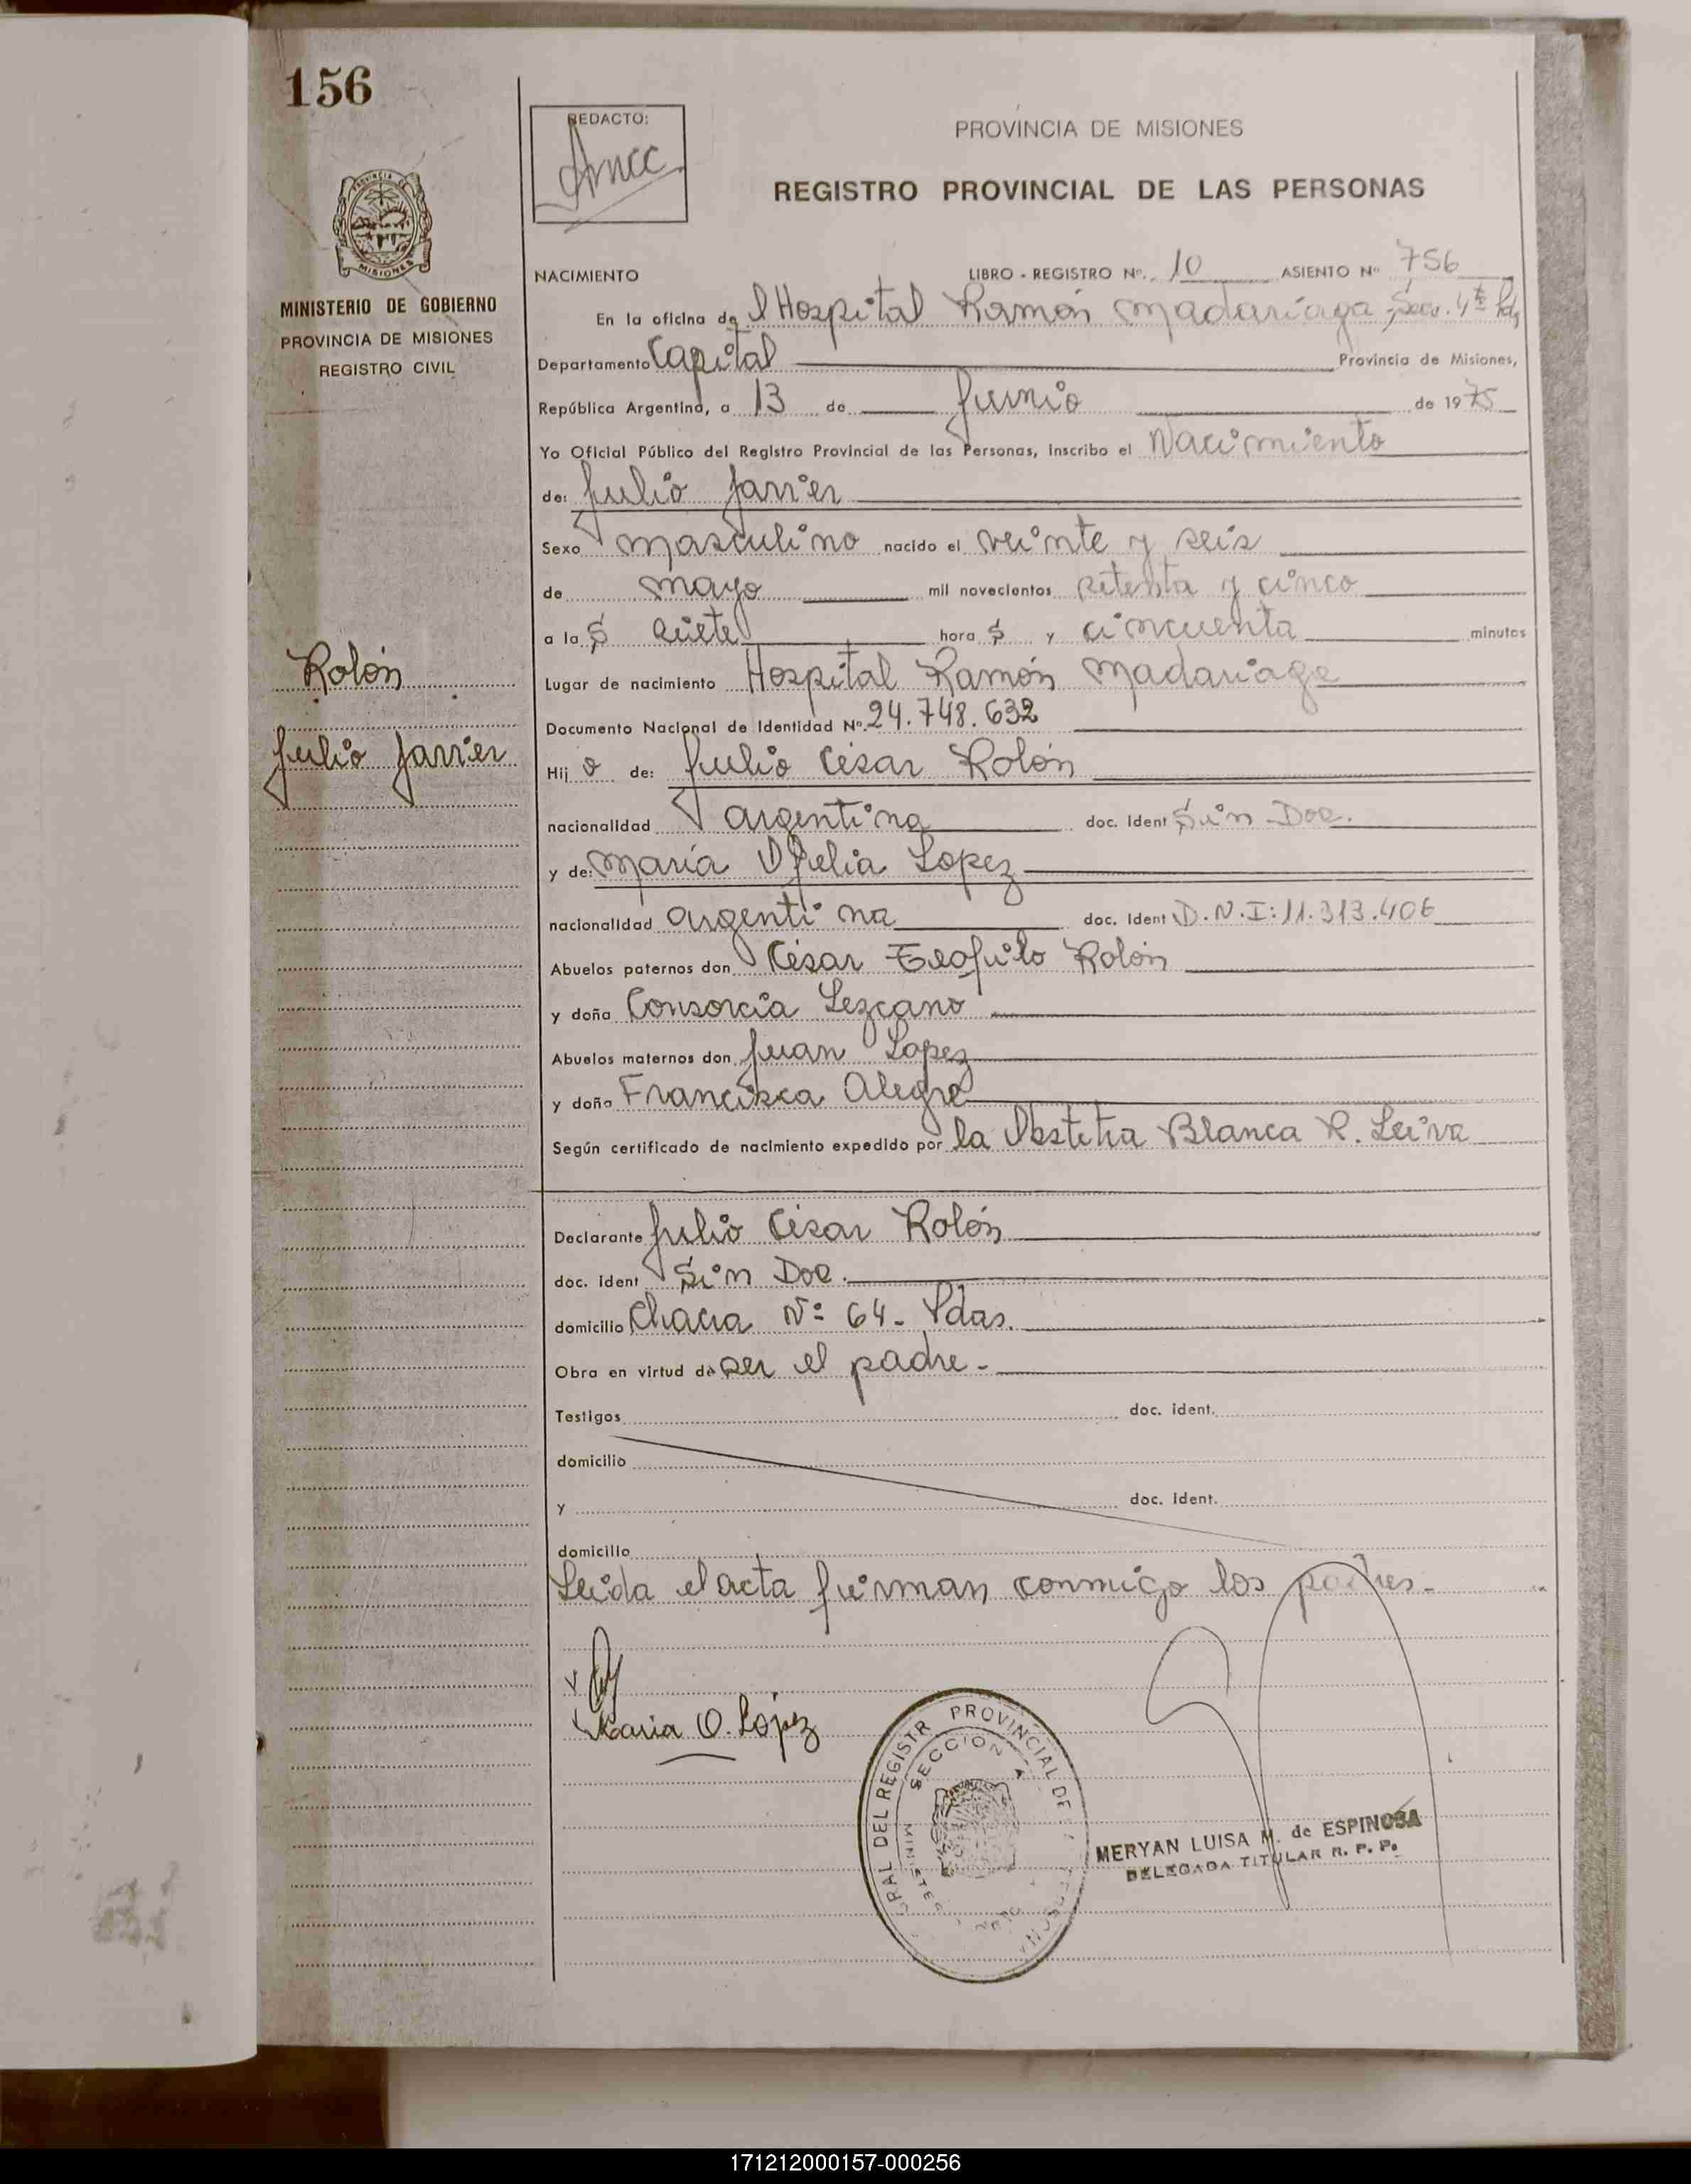 156
REDACTO:
PROVINCIA DE MISIONES
REGISTRO PROVINCIAL DE LAS PERSONAS
MISIONES
MINISTERIO DE GOBIERNO
PROVINCIA DE MISIONES
REGISTRO CIVIL
NACIMIENTO LIBRO - REGISTRO Nº. 10 ASIENTO Nº 756
En la oficina de l Hospital Ramón Madariaga, Secc. 4ta Pdas
Departamento Capital Provincia de Misiones,
República Argentina, a 13 de Junio de 1975
Yo Oficial Público del Registro Provincial de las Personas, Inscribo el Nacimiento
de: Julio Javier
Sexo masculino nacido el veinte y seis
de mayo mil novecientos setenta y cinco
a las siete horas y cincuenta minutos
Lugar de nacimiento Hospital Ramón Madariaga
Documento Nacional de Identidad Nº. 24.748.632
Rolón
Julio Javier
Hij o de: Julio César Rolón
nacionalidad argentina doc. Ident Sin Doc.
y de: María Ofelia Lopez
nacionalidad argentina doc. Ident D.N.I: 11.313.406
Abuelos paternos don César Teofilo Rolón
y doña Consorcia Lezcano
Abuelos maternos don Juan Lopez
y doña Francisca Alegre
Según certificado de nacimiento expedido por la Obstetra Blanca R. Leiva
Declarante Julio César Rolón
doc. ident Sin Doc.
domicilio Chacra Nº 64 - Pdas.
Obra en virtud de ser el padre -
Testigos doc. ident.
domicilio
y doc. ident.
domicilio
Leida el acta firman conmigo los padres -
Maria O. López
PROVINCIAL DE
SECCION
MERYAN LUISA M. de ESPINOSA
DELEGADA TITULAR R. P. P.
171212000157-000256